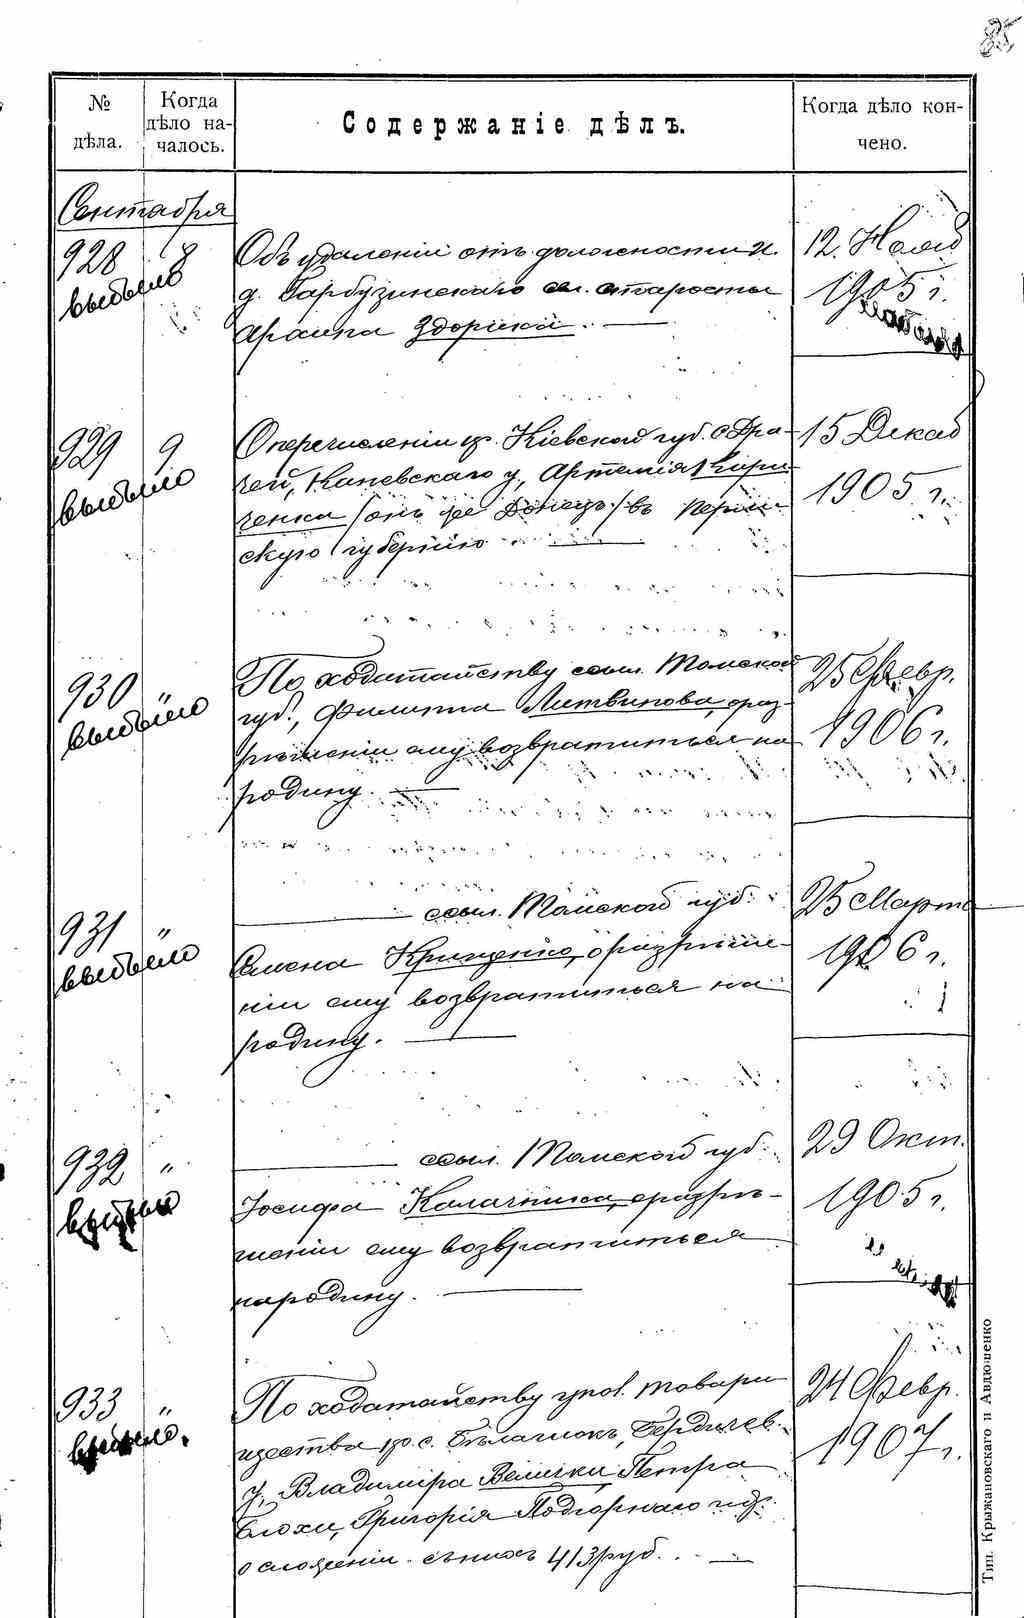 85
№ дѣла.
Когда дѣло на-чалось.
Содержаніе дѣлъ.
Когда дѣло кон-чено.
Сентября
928 8
выбыло
Объ удаленіи отъ должности и.
д. Гарбузинскаго сел. старосты
Здорика.
12. Нояб
1905 г.
929 9
выбыло
О перечисленіи кр. Кіевской губ. с Дра-
чей, Каневскаго у, Артемія Кири-
ченка /онъ же Донецъ/ въ Перм-
скую губернію
15 Декаб
1905 г.
930 "
выбыло
По ходатайству ссыл. Томской
губ., Филиппа Литвинова, о раз-
рѣшеніи ему возвратиться на
родину.
25 Февр.
1906 г.
931 "
выбыло
ссыл. Томской губ.
Семена Крищенко, о разрѣше-
ніи ему возвратиться на
родину.
25 Марта
1906 г.
932 "
выбыло
ссыл. Томской губ.
Іосифа Калачника, о разрѣ-
шеніи ему возвратиться
на родину.
29 Окт.
1905 г.
933 "
выбыло.
По ходатайству упол. товари
щества кр. с. Бѣлашокъ, Бердичев.
у, Владиміра Велички, Петра
Блохи, Григорія Подгорнаго и др.
о сложеніи съ нихъ 413 руб.
24 Февр.
1907 г.
Тип. Крыжановскаго и Авдюшенко